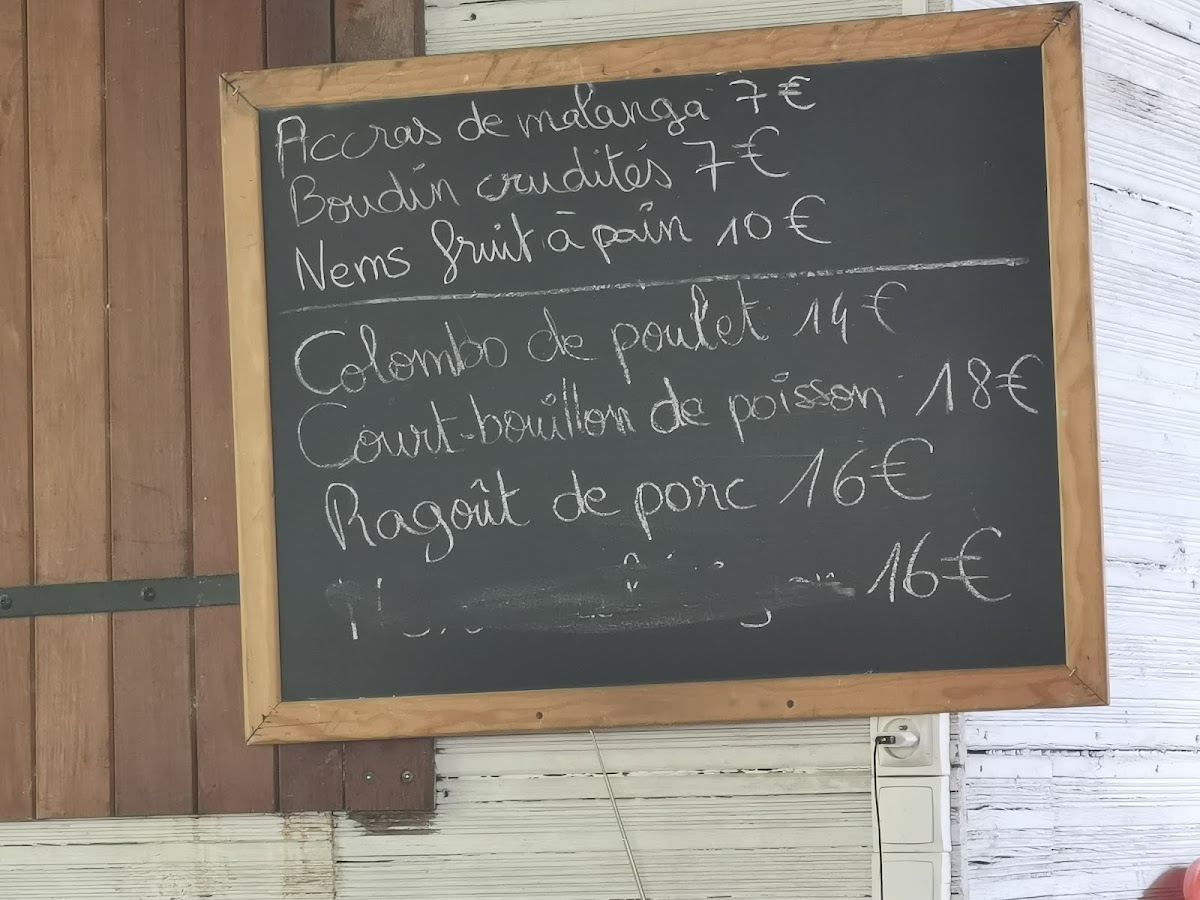 Accras de malanga 7€
Boudin crudités 7€
Nems fruit à pain 10€
Colombo de poulet 14€
Court-bouillon de poisson 18€
Ragoût de porc 16€
16€